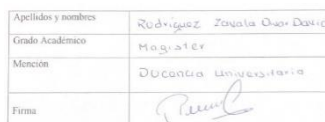 Apellidos y nombres Rodriguez Zavala Omar David
Grado Académico Magister
Mención Docencia Universitaria
Firma